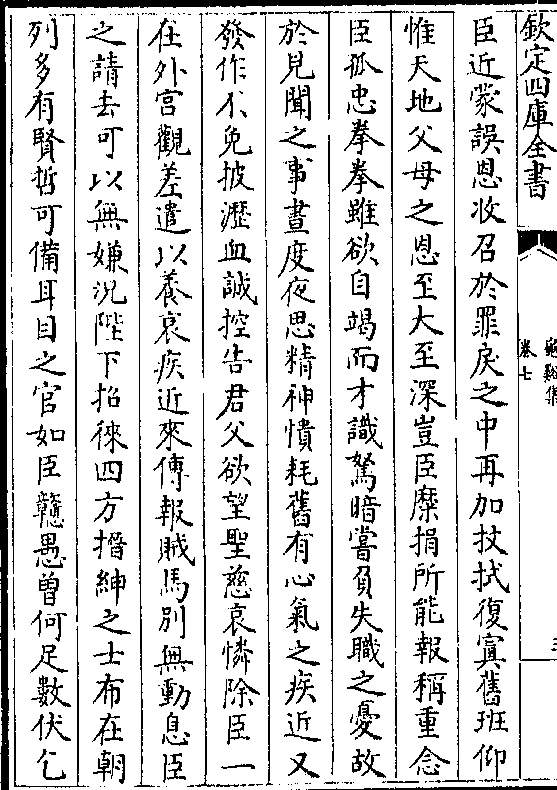 欽定四庫全書
龜谿集
卷七
三
臣近蒙誤恩收召於罪戾之中再加拭復寘舊班仰
惟天地父母之恩至大至深豈臣糜捐所能報稱重念
臣孤忠拳拳雖欲自竭而才識駑暗嘗負失職之憂故
於見聞之事晝度夜思精神憒耗舊有心氣之疾近又
發作不免披瀝血誠控告君父欲望聖慈哀憐除臣一
在外宮觀差遣以養衰疾近來傳報賊馬別無動息臣
之請去可以無嫌況陛下招徠四方搢紳之士布在朝
列多有賢哲可備耳目之官如臣戇愚曽何足數伏乞